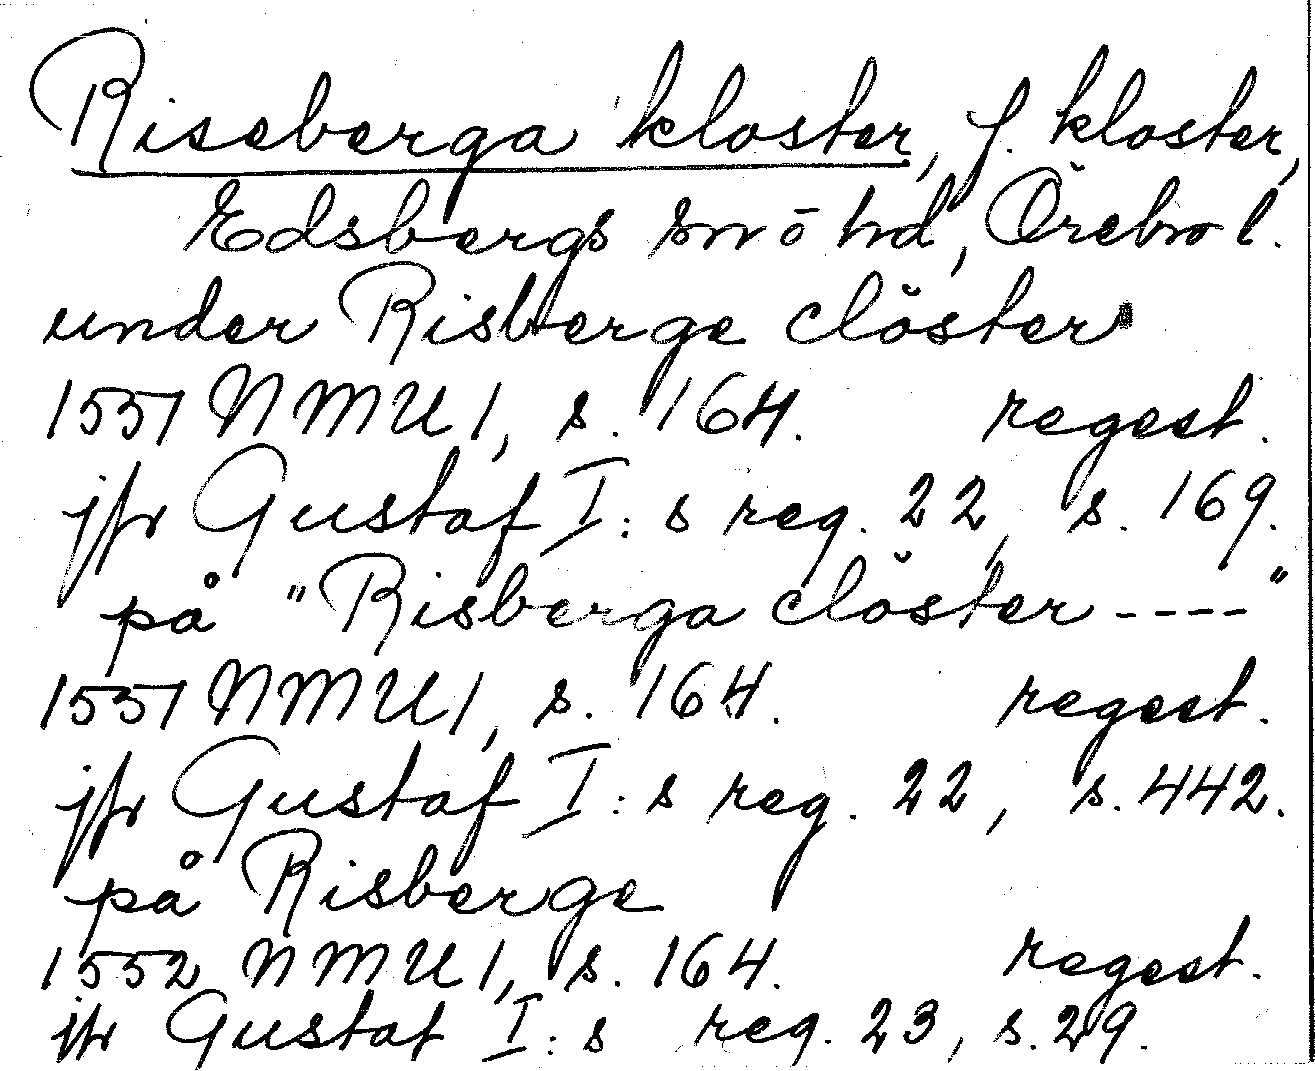 Riseberga kloster, f. kloster,
Edsbergs sn ö hd, Örebro l.
under Risberge clöster
1551 NMU 1, s. 164. regest.
jfr Gustaf I:s reg. 22, s. 169.
på "Risberga clöster ----"
1551 NMU 1, s. 164. regest.
jfr Gustaf I:s reg. 22, s. 442.
på Risberge
1552 NMU 1, s. 164. regest.
jfr Gustaf I:s reg. 23, s. 29.